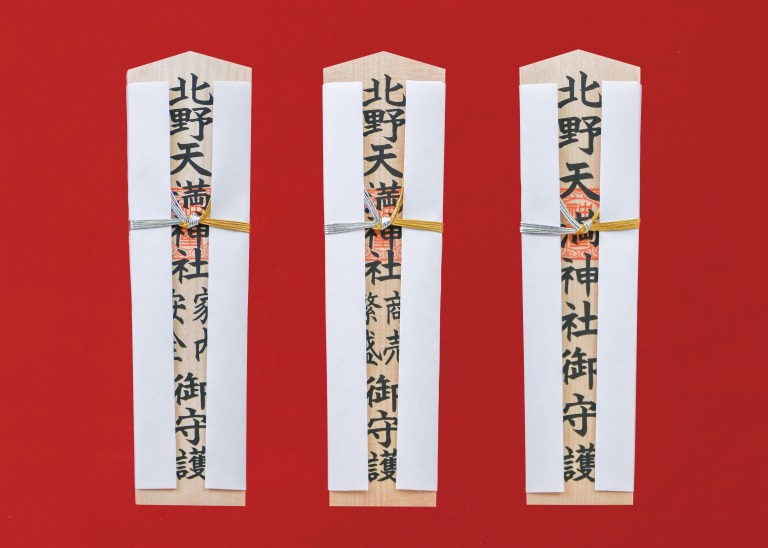 北野天満神社家内安全御守護
北野天満神社商売繁盛御守護
北野天満神社御守護